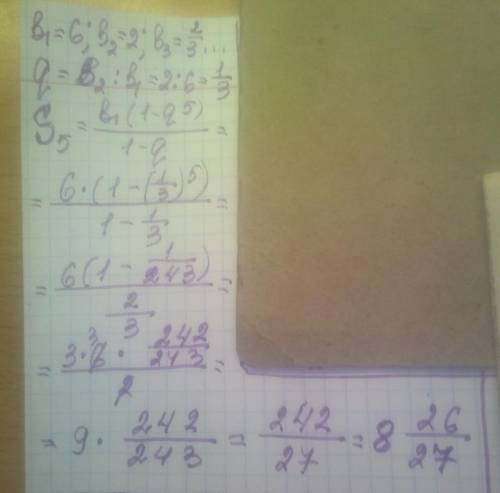 b₁=6; b₂=2; b₃=2/3...
q = b₂:b₁=2:6=1/3
S₅ = b₁(1-q⁵)/1-q =
= 6·(1-(1/3)⁵)/1-1/3 =
= 6(1-1/243)/2/3 =
= 3·6³·242/243/2 =
= 9·242/243 = 242/27 = 8 26/27